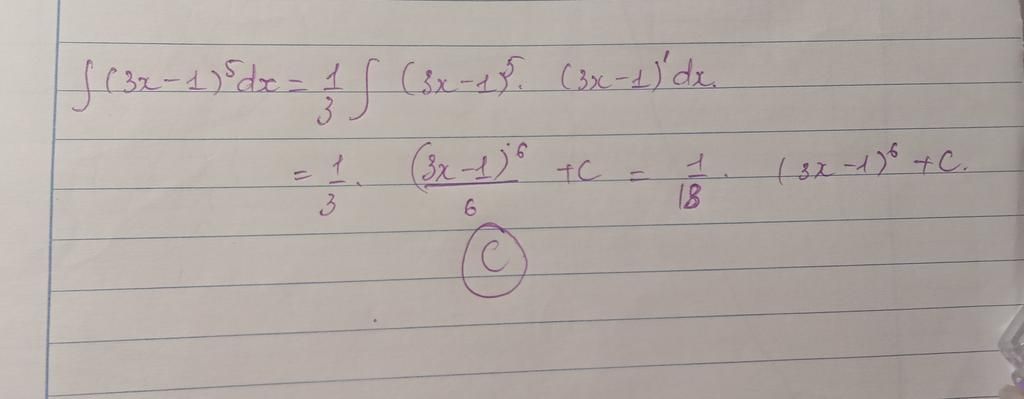 ∫(3x-1)⁵dx = 1/3 ∫ (3x-1)⁵. (3x-1)'dx.
= 1/3. (3x-1)⁶/6 +C = 1/18. (3x-1)⁶ +C.
C